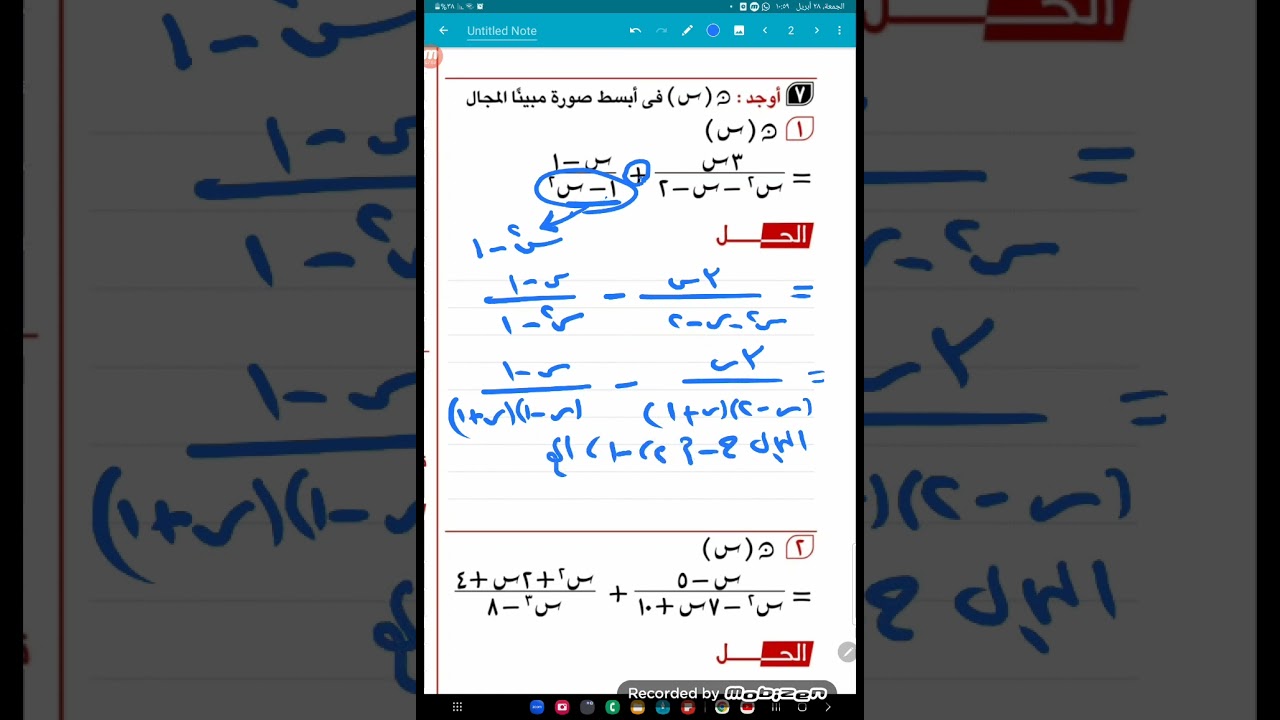 الجمعة، ٢٨ أبريل ١٠:٥٩ ٣٨%
Untitled Note 2
٧ أوجد : ن (س) فى أبسط صورة مبينًا المجال
١ ن (س)
= ٣س / (س٢ – س – ٢) + (س – ١) / (١ – س٢)
س٢ – ١
الحـــل
= ٣س / (س٢ – س – ٢) – (س – ١) / (س٢ – ١)
= ٣س / (س – ٢)(س + ١) – (س – ١) / (س – ١)(س + ١)
المجال ح – { ٢، –١،
٢ ن (س)
= (س – ٥) / (س٢ – ٧س + ١٠) + (س٢ + ٢س + ٤) / (س٣ – ٨)
الحـــل
Recorded by Mobizen